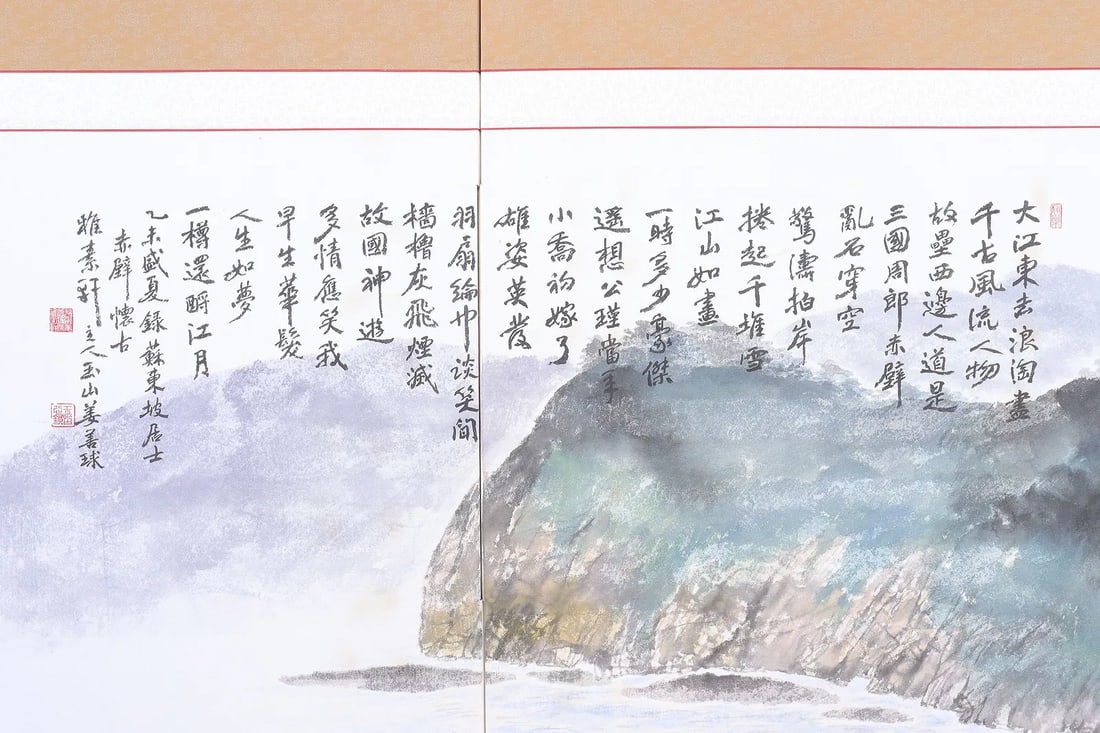 大江東去浪淘盡
千古風流人物
故壘西邊人道是
三國周郎赤壁
亂石穿空
驚濤拍岸
捲起千堆雪
江山如畫
一時多少豪傑
遥想公瑾當年
小喬初嫁了
雄姿英發
羽扇綸巾談笑間
檣櫓灰飛煙滅
故國神遊
多情應笑我
早生華髮
人生如夢
一樽還酹江月
乙未盛夏錄蘇東坡居士
赤壁懷古
雅素軒主人玉山姜善球